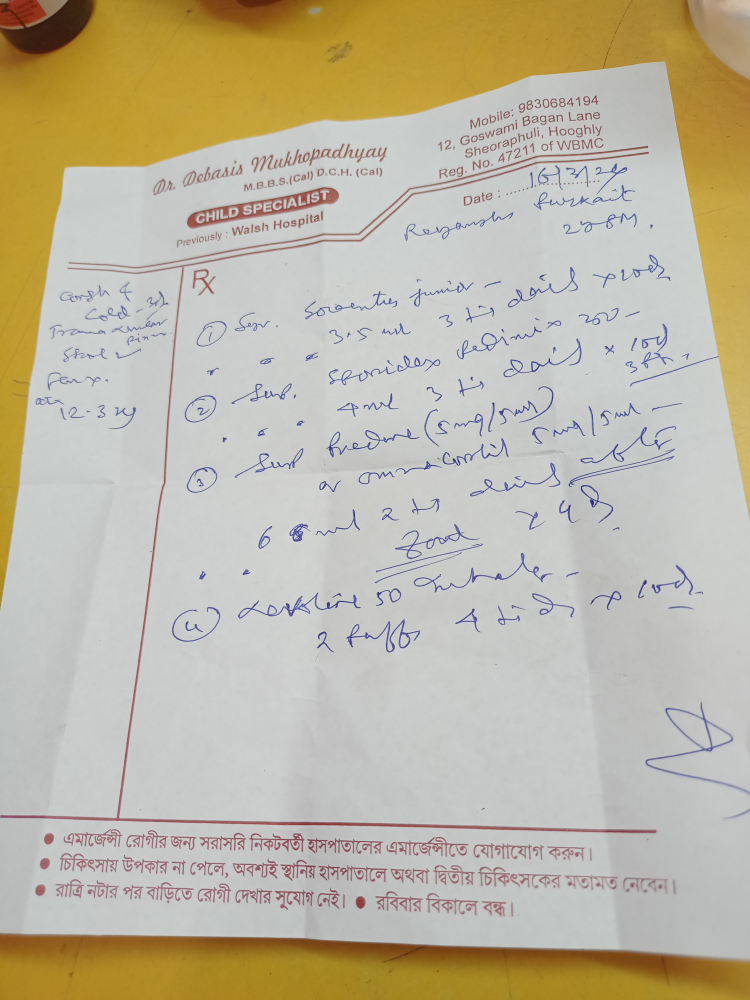 Dr. Debasis Mukhopadhyay
M.B.B.S.(Cal) D.C.H. (Cal)
CHILD SPECIALIST
Previously : Walsh Hospital
Mobile: 9830684194
12, Goswami Bagan Lane
Sheoraphuli, Hooghly
Reg. No. 47211 of WBMC
Date : 16/3/
Cough &
Cold - 3d
Stool ✓
12.3 kg
Rx
① junior -
3.5 ml 3 daily x 10d
② Susp. Sporidex Redimix 250 -
4 ml 3 daily x 10d
③ Susp (5mg/5ml)
or omnacortil 5mg/5ml -
6 ml 2 daily after
food x 4d
④ 50 Inhaler -
2 puffs 4 x 10d
● এমার্জেন্সী রোগীর জন্য সরাসরি নিকটবর্তী হাসপাতালের এমার্জেন্সীতে যোগাযোগ করুন।
● চিকিৎসায় উপকার না পেলে, অবশ্যই স্থানিয় হাসপাতালে অথবা দ্বিতীয় চিকিৎসকের মতামত নেবেন।
● রাত্রি নটার পর বাড়িতে রোগী দেখার সুযোগ নেই। ● রবিবার বিকালে বন্ধ।